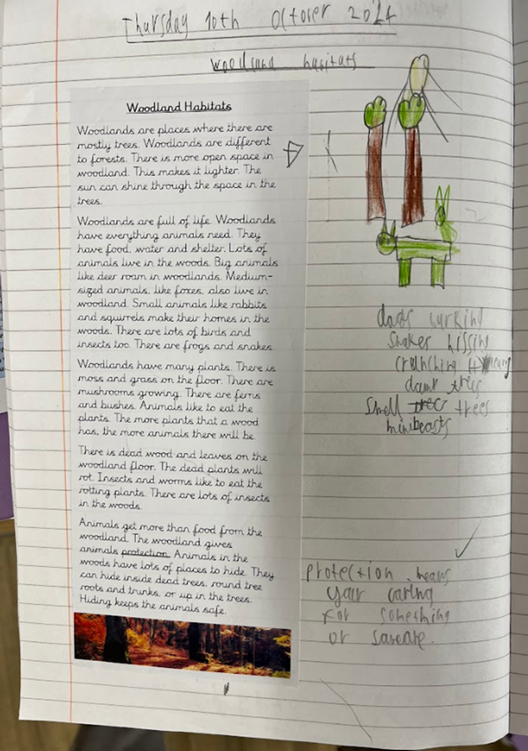 Thursday 10th October 2024
Woodland habitats
Woodland Habitats
Woodlands are places where there are
mostly trees. Woodlands are different
to forests. There is more open space in
woodland. This makes it lighter. The
sun can shine through the space in the
trees.
Woodlands are full of life. Woodlands
have everything animals need. They
have food, water and shelter. Lots of
animals live in the woods. Big animals
like deer roam in woodlands. Medium-
sized animals, like foxes, also live in
woodland. Small animals like rabbits
and squirrels make their homes in the
woods. There are lots of birds and
insects too. There are frogs and snakes.
Woodlands have many plants. There is
moss and grass on the floor. There are
mushrooms growing. There are ferns
and bushes. Animals like to eat the
plants. The more plants that a wood
has, the more animals there will be.
There is dead wood and leaves on the
woodland floor. The dead plants will
rot. Insects and worms like to eat the
rotting plants. There are lots of insects
in the woods.
Animals get more than food from the
woodland. The woodland gives
animals protection. Animals in the
woods have lots of places to hide. They
can hide inside dead trees, round tree
roots and trunks, or up in the trees.
Hiding keeps the animals safe.
snakes hissing
crunching
trees
Smell trees
minibeasts
protection means
your caring
for something
or